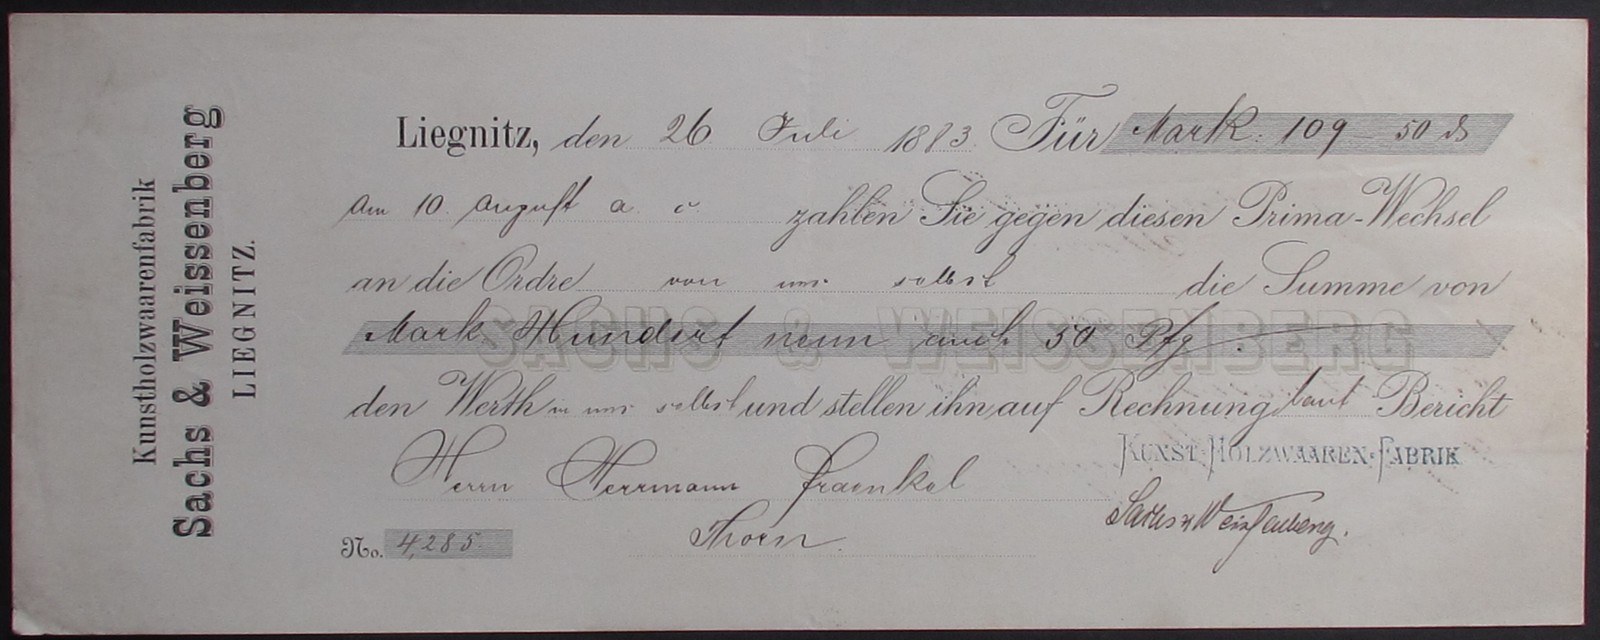 Kunstholzwaarenfabrik
Sachs & Weissenberg
LIEGNITZ.
Liegnitz, den 26 Juli 1883. Für Mark: 109 - 50 ₰
Am 10 August a. c. zahlen Sie gegen diesen Prima-Wechsel
an die Ordre von uns selbst die Summe von
SACHS & WEISSENBERG
Mark Hundert neun auch 50 Pfg.
den Werth in uns selbst und stellen ihn auf Rechnung laut Bericht
Herrn Herrmann Fraenkel
KUNST-HOLZWAAREN-FABRIK
Sachs & Weissenberg.
No. 4,285. Thorn.